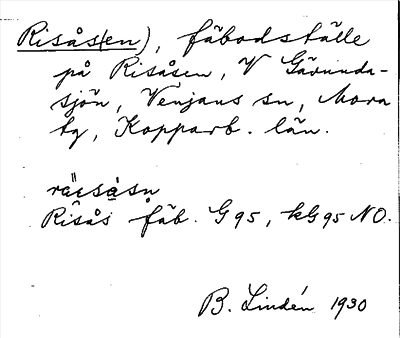 Risås(en), fäbodställe
på Risåsen, V Gävunda-
sjön, Venjans sn, Mora
tg, Kopparb. län.
Risås fäb. G95, kG95 NO.
B. Lindén 1930